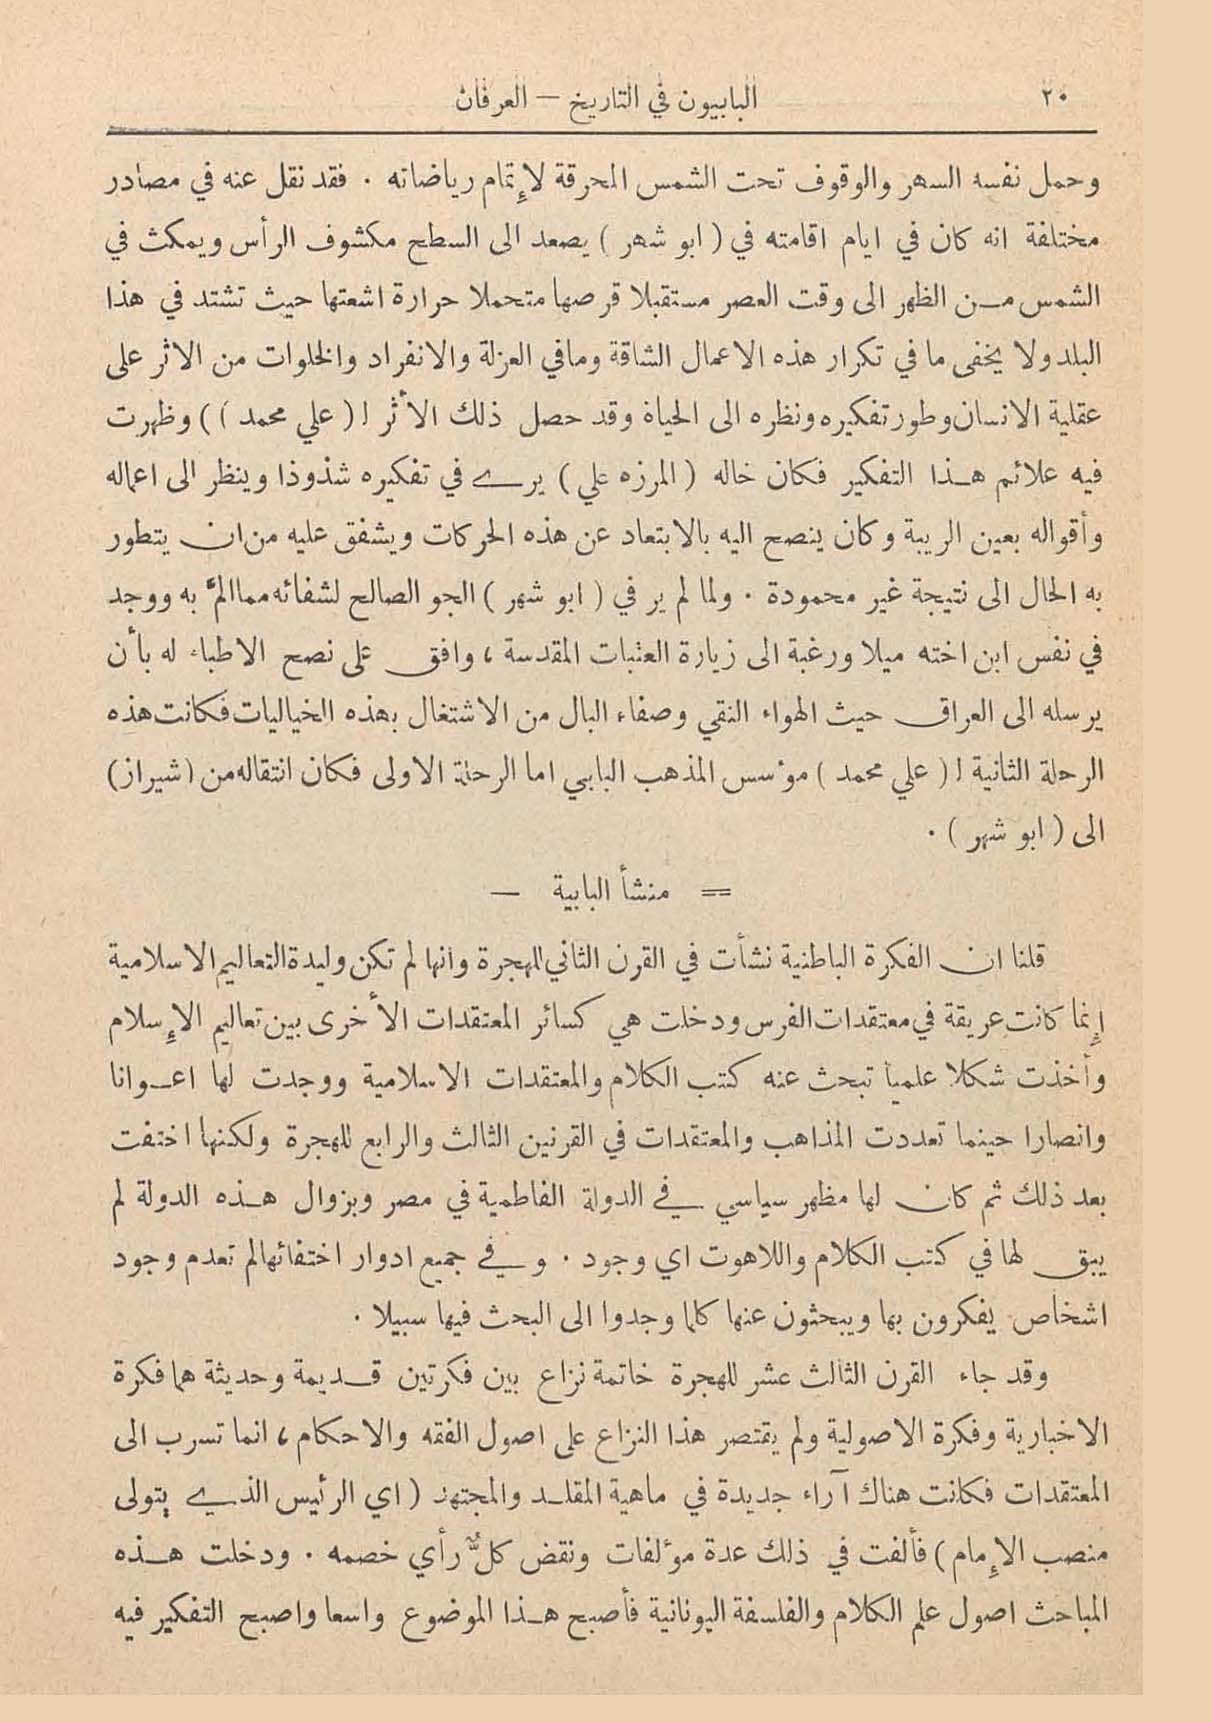 ٢٠
البابيون في التاريخ — العرفان
وحمل نفسه السهر والوقوف تحت الشمس المحرقة لإتمام رياضاته . فقد نقل عنه في مصادر
مختلفة انه كان في ايام اقامته في ( ابو شهر ) يصعد الى السطح مكشوف الرأس ويمكث في
الشمس من الظهر الى وقت العصر مستقبلا قرصها متحملا حرارة اشعتها حيث تشتد في هذا
البلد ولا يخفى ما في تكرار هذه الاعمال الشاقة ومافي العزلة والانفراد والخلوات من الاثر على
عقلية الانسان وطور تفكيره ونظره الى الحياة وقد حصل ذلك الأثر ل( علي محمد ) ) وظهرت
فيه علائم هذا التفكير فكان خاله ( المرزه علي ) يرى في تفكيره شذوذا وينظر الى اعماله
وأقواله بعين الريبة وكان ينصح اليه بالابتعاد عن هذه الحركات ويشفق عليه من ان يتطور
به الحال الى نتيجة غير محمودة . ولما لم ير في ( ابو شهر ) الجو الصالح لشفائه مما المَّ به ووجد
في نفس ابن اخته ميلا ورغبة الى زيارة العتبات المقدسة ، وافق على نصح الاطباء له بأن
يرسله الى العراق حيث الهواء النقي وصفاء البال من الاشتغال بهذه الخياليات فكانت هذه
الرحلة الثانية ل( علي محمد ) مؤسس المذهب البابي اما الرحلة الاولى فكان انتقاله من ( شيراز )
الى ( ابو شهر ) .
= منشأ البابية —
قلنا ان الفكرة الباطنية نشأت في القرن الثاني للهجرة وانها لم تكن وليدة التعاليم الاسلامية
إنما كانت عريقة في معتقدات الفرس ودخلت هي كسائر المعتقدات الأخرى بين تعاليم الإسلام
وأخذت شكلا علمياً تبحث عنه كتب الكلام والمعتقدات الاسلامية ووجدت لها اعوانا
وانصارا حينما تعددت المذاهب والمعتقدات في القرنين الثالث والرابع للهجرة ولكنها اختفت
بعد ذلك ثم كان لها مظهر سياسي في الدولة الفاطمية في مصر وبزوال هذه الدولة لم
يبق لها في كتب الكلام واللاهوت اي وجود . وفي جميع ادوار اختفائها لم تعدم وجود
اشخاص يفكرون بها ويبحثون عنها كلما وجدوا الى البحث فيها سبيلا .
وقد جاء القرن الثالث عشر للهجرة خاتمة نزاع بين فكرتين قديمة وحديثة هما فكرة
الاخبارية وفكرة الاصولية ولم يقتصر هذا النزاع على اصول الفقه والاحكام ، انما تسرب الى
المعتقدات فكانت هناك آراء جديدة في ماهية المقلد والمجتهد ( اي الرئيس الذي يتولى
منصب الإمام ) فألفت في ذلك عدة مؤلفات ونقض كلٌّ رأي خصمه . ودخلت هذه
المباحث اصول علم الكلام والفلسفة اليونانية فأصبح هذا الموضوع واسعا واصبح التفكير فيه